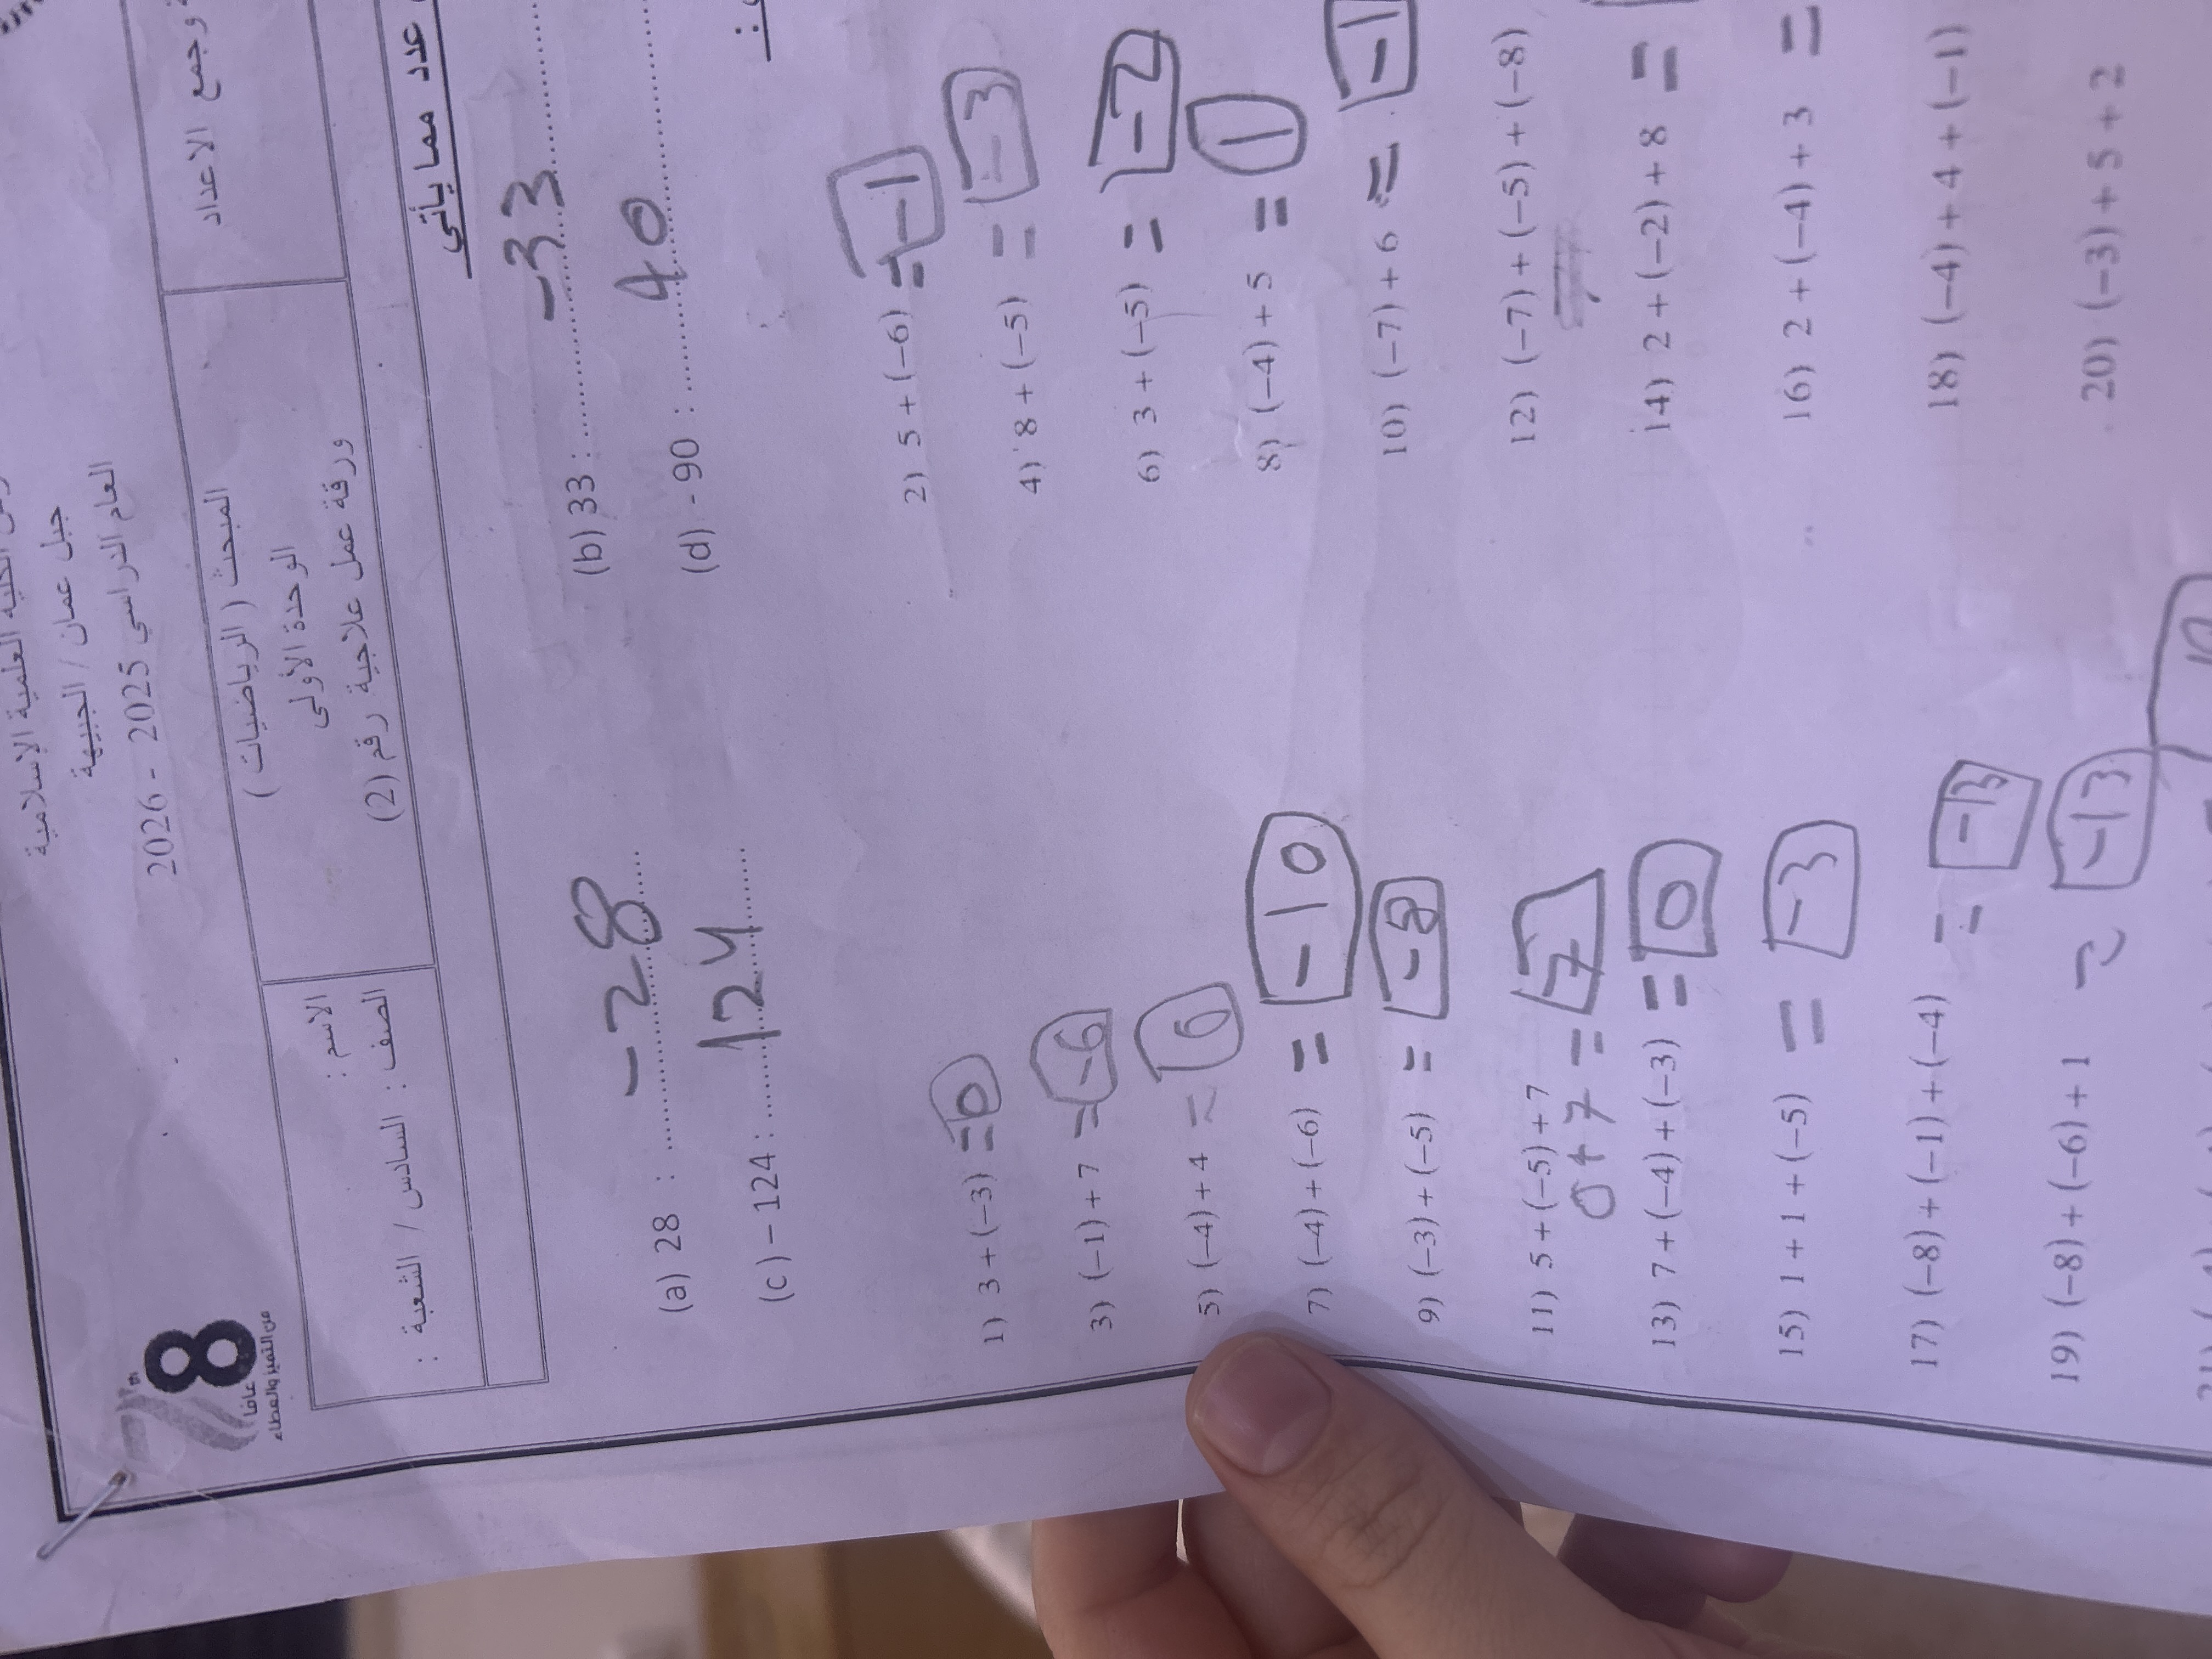 العلمية الإسلامية
جبل عمان / الجبيهة
العام الدراسي 2025 - 2026
78
عاما
من التميز والعطاء
الاسم :
الصف : السادس / الشعبة :
المبحث ( الرياضيات )
الوحدة الأولى
ورقة عمل علاجية رقم (2)
وجمع الاعداد
عدد مما يأتي
(a) 28 : -28
(b) 33 : -33
(c) -124 : 124
(d) -90 : 40
1) 3 + (-3) = 0
2) 5 + (-6) = -1
3) (-1) + 7 = -6
4) 8 + (-5) = -3
5) (-4) + 4 = 6
6) 3 + (-5) = -2
7) (-4) + (-6) = -10
8) (-4) + 5 = 1
9) (-3) + (-5) = -8
10) (-7) + 6 = -1
11) 5 + (-5) + 7 = 7
0+7
12) (-7) + (-5) + (-8)
13) 7 + (-4) + (-3) = 0
14) 2 + (-2) + 8 =
15) 1 + 1 + (-5) = -3
16) 2 + (-4) + 3 =
17) (-8) + (-1) + (-4) = -13
18) (-4) + 4 + (-1)
19) (-8) + (-6) + 1 = -13
20) (-3) + 5 + 2
10